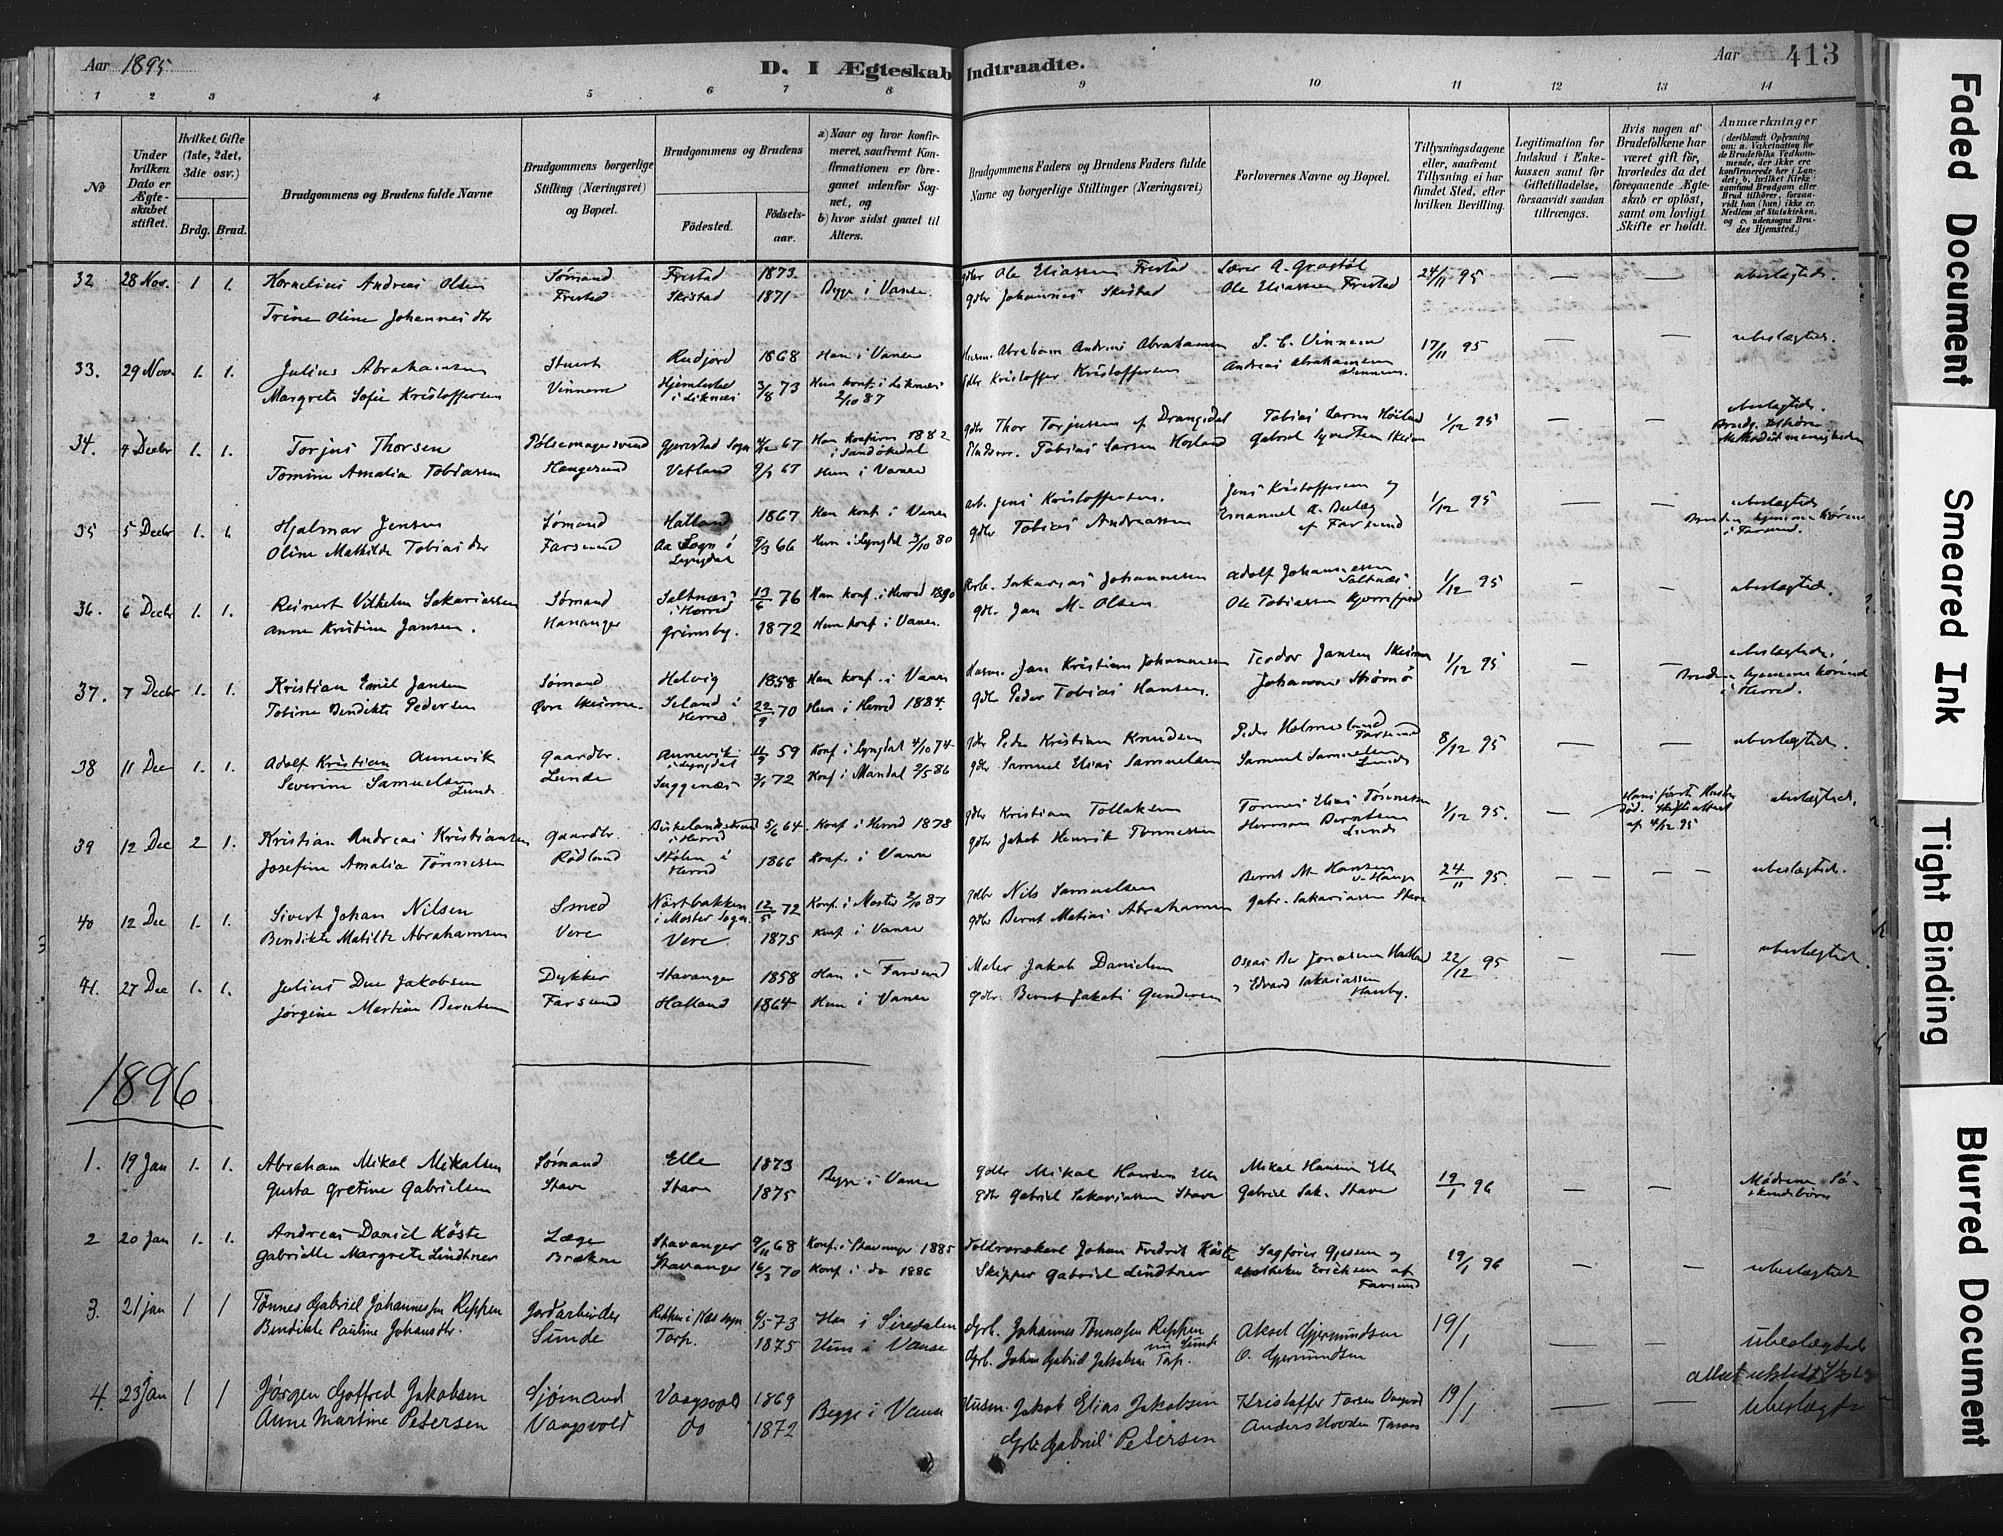 Aar 1895
D. I Ægteskab Indtraadte.
Aar 413
1 2 3 4 5 6 7 8 9 10 11 12 13 14
No
Under hvilken Dato er Ægteskabet stiftet.
Hvilket Gifte (1ste, 2det, 3die osv.)
Brdg. Brud.
Brudgommens og Brudens fulde Navne
Brudgommens borgerlige Stilling (Næringsvei) og Bopæl.
Brudgommens og Brudens
Fødested. Fødselsaar.
a) Naar og hvor konfirmeret, saafremt Konfirmationen er foregaaet udenfor Sognet, og
b) hvor sidst gaaet til Alters.
Brudgommens Faders og Brudens Faders fulde Navne og borgerlige Stillinger (Næringsvei)
Forlovernes Navne og Bopæl.
Tillysningsdagene eller, saafremt Tillysning ei har fundet Sted, efter hvilken Bevilling.
Legitimation for Indskud i Enkekassen samt for Giftetilladelse, forsaavidt saadan tiltrænges.
Hvis nogen af Brudefolkene har været gift før, hvorledes da det foregaaende Ægteskab er opløst, samt om lovligt Skifte er holdt.
Anmærkninger
(deriblandt Oplysning om: a. Vakcination for de Brudefolks Vedkommende, der ikke ere konfirmerede her i Landet; b. hvilket Kirkesamfund Brudgom eller Brud tilhører, forsaavidt han (hun) ikke er Medlem af Statskirken, og c. udensogns Brudes Hjemsted.)
32 28 Nov. 1 1. Kornelius Andreas Olsen Sømand Frestad 1873 Begge i Vanse. gdbr Ole Eliassen Frestad Lærer A. Grostøl 24/11 95 — — ubeslægtede.
Trine Oline Johannesdtr Frestad Skistad 1871 gdbr Johannes Skistad Ole Eliassen Frestad
33. 29 Nov. 1. 1. Julius Abrahamsen Stuert Rudjord 1868 Han i Vanse Husm. Abraham Andreas Abrahamsen S. C. Vinnem 17/11 95 — — ubeslægtede.
Margrete Sofie Kristoffersen Vinnem i Liknæs 3/8 73 Hun konf. i Liknæs 2/10 87 gdbr Kristoffer Kristoffersen Andreas Abrahamsen Vinnem
34. 4 Decbr 1. 1. Torjus Thorsen Pølsemagersvend Gjerestad Sogn 67 Han konfirm 1882 i Sandøkedal gdbr Thor Torjussen af Drangsdal Tobias Larsen Høiland 1/12 95 — — ubeslægtede. Brudg. tilhører Methodistmenigheden
Tomine Amalia Tobiassen Haugesund Vetland 9/3 67 Hun i Vanse Pladsm. Tobias Larsen Høiland Gabriel Syvertsen Skeime
35 5 Decbr 1. 1. Hjalmar Jensen Sømand Hatland 1867 Han konf. i Vanse arb. Jens Kristoffersen. Jens Kristoffersen og 1/12 95 — — ubeslægtede
Oline Mathilde Tobiasdtr Farsund Aa Sogn i Lyngdal 9/3 66 Hun i Lyngdal 3/10 80 gdbr Tobias Andreassen Emanuel A. af Farsund Bruden hjemmehørende i Farsund.
36. 6 Decbr 1. 1. Reinert Vilhelm Sakariassen Sømand Saltnæs i Herred 13/6 76 Han konf. i Herred 1890 Sakarias Johannessen Adolf Johannessen Saltnæs 1/12 95 — — ubeslægtede.
Anne Kristine Jansen. Hananger Grimsby. 1872 Hun konf. i Vanse. gdbr. Jan M. Olsen Ole Tobiassen
37. 7 Decbr 1. 1. Kristian Emil Jansen Sømand Helvig 1858 Han konf. i Vanse Husm. Jan Kristian Johannessen Teodor Jansen Skeime 1/12 95 — — ubeslægtede.
Tobine Bendikte Pedersen Øvre Skeime Seland i Herred 22/9 70 Hun i Herred 1884. gdbr Peder Tobias Hansen. Johannes Strømø Bruden hjemmehørende i Herred.
38 11 Dec 1. 1. Adolf Kristian Aunevik Gaardbr. Aunevik i Lyngdal 11/9 59 Konf. i Lyngdal 4/10 74 gdbr Peder Kristian Knudsen Peder Holmesland Farsund 8/12 95 — — ubeslægtede.
Severine Samuelsen Lunde Lunde Suggenæs 3/1 72 Konf. i Mandal 2/5 86 gdbr Samuel Elias Samuelsen Samuel Samuelsen Lunde
39 12 Dec 2 1. Kristian Andreas Kristiansen Gaardbr. Birkelandstrand i Herred 5/6 64 Konf. i Herred 1878 gdbr Kristian Tollaksen Tønnes Elias Tønnessen 1/12 95. — Hans første Hustru død. Skifteattest af 4/12 95 ubeslægtede.
Josefine Amalia Tønnessen Rødland Stølen i Herred 1866 Konf. i Vanse gdbr Jakob Henrik Tønnessen Herman Berntsen Lunde
40 12 Dec 1. 1. Sivert Johan Nilsen Smed Nørtbakken i Moster Sogn 12/5 72 Konf. i Moster 2/10 87 gdbr Nils Samuelsen Bernt M. Hansen v. Hauge 24/11 95. — — ubeslægtede.
Bendikte Matilde Abrahamsen Vere Vere. 1875 Konf. i Vanse gdbr Bernt Matias Abrahamsen Gabr. Sakariassen Stave
41. 27 Dec 1. 1. Julius Due Jakobsen Dykker Stavanger 1858 Han i Farsund Maler Jakob Danielsen Jonassen Hatland 22/12 95 — — ubeslægtede.
Jørgine Martine Berntsen Farsund Hatland 1864 Hun i Vanse gdbr. Bernt Jakob Gundersen Edvard Sakariassen
1896
1. 19 Jan 1. 1. Abraham Mikal Mikalsen Sømand Elle 1873 Begge i Vanse gdbr Mikal Hansen Elle Mikal Hansen Elle 19/1 96 — — Mødrene Søskendebørn
Gusta Gretine Gabrielsen Stave Stave 1875 gdbr Gabriel Sakariassen Stave Gabriel Sak. Stave
2 20 Jan 1. 1. Andreas Daniel Køste Læge Stavanger 9/11 68 Konf. i Stavanger 1885 Johan Fredrik Køste Sagfører Gjessen og 19/1 96 — — ubeslægtede
Gabrielle Margrete Lindtner Brækne Stavanger 16/3 70 Konf. i do 1886 Skipper Gabriel Lindtner apotheker Ericksen af Farsund
3. 21 Jan 1 1 Tønnes Gabriel Johannessen Reppen Jordarbeider Reppen i 6/5 73 Han i Siredalen Gbr. Johannes Tønnessen Reppen Aksel Gjermundsen 19/1 — — ubeslægtede
Bendikte Pauline Johansdtr. Sunde Torp. 1875 Hun i Vanse Gbr. Johan Gabriel Jakobsen Torp. O. Gjermundsen
4. 23 Jan 1 1 Jørgen Gotfred Jakobsen Sjømand Vaagsvold 1869 Begge i Vanse Husm. Jakob Elias Jakobsen Kristoffer Tarsen 19/1 — — ubeslægtede
Anne Martine Petersen Vaagsvold do 1872 Gbr. Gabriel Petersen Anders
Faded Document
Smeared Ink
Tight Binding
Blurred Document